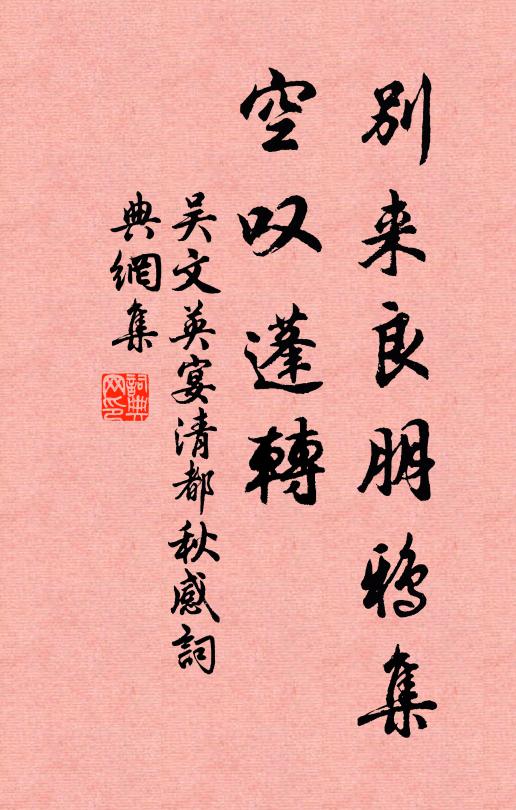 别来良朋鸦集
空叹蓬轉
吴文英宴清都秋感詞
典網集
詞典
网印